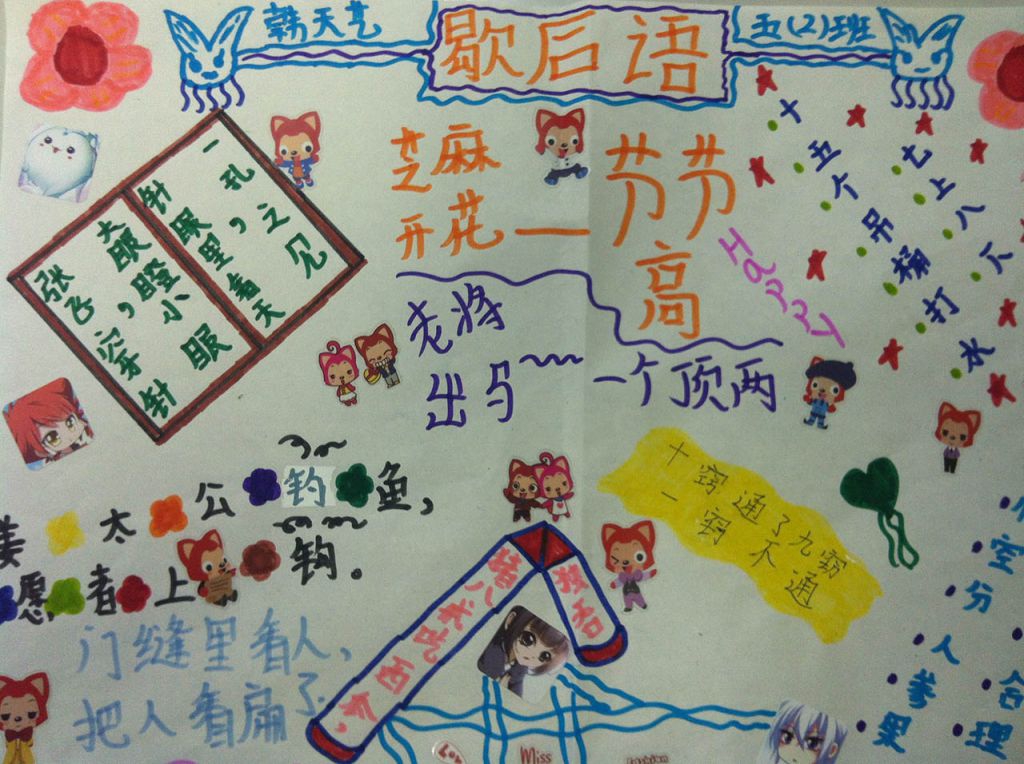 韩天艺
歇后语
五(2)班
张飞穿针，
大眼瞪小眼
针眼里看天，
一孔之见
芝麻
开花—节节
高
Happy
十五个吊桶打水
七上八下
老将
出马~一个顶两
姜太公钓鱼，
愿者上钩。
十窍通了九窍
一窍不通
猪八戒吃西
门缝里看人，
把人看扁了
空分人参果
合理
Miss